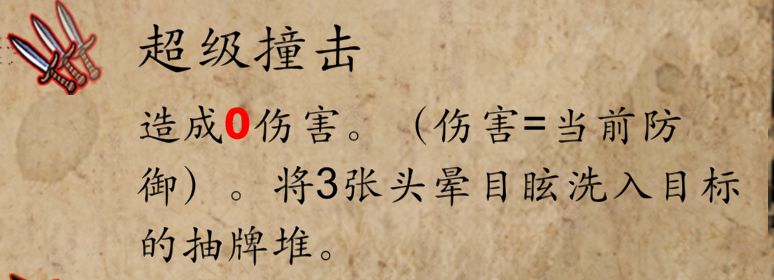 超级撞击
造成0伤害。（伤害=当前防
御）。将3张头晕目眩洗入目标
的抽牌堆。